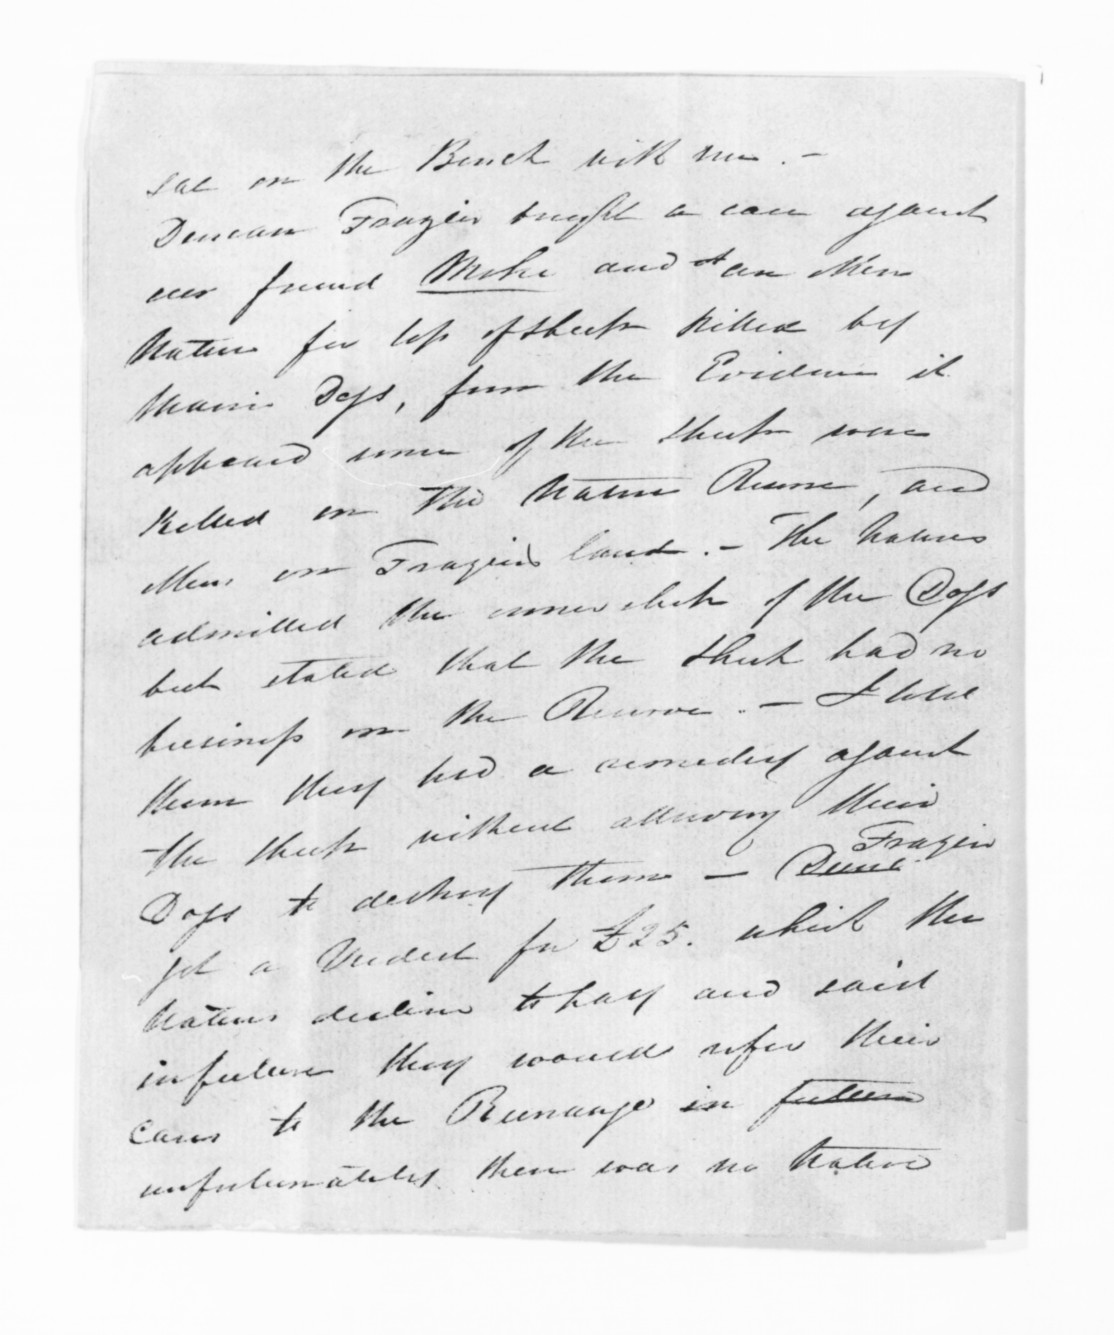 sat on the Bench with me. -
Duncan Frazier brought a case against
our friend and an other
Native for loss of sheep killed by
their Dogs, from the Evidence it
appeared some of the sheep were
killed on the Native Reserve, and
others on Fraziers land. - The Natives
admitted the ownership of the Dogs
but stated that the sheep had no
business on the Reserve. - I told
them they had a remedy against
the sheep without allowing their
Dogs to destroy them - Frazier
got a Verdict for £25. which the
Natives decline to pay and said
in future they would refer their
cases to the Runanga in future
unfortunately there was no Native